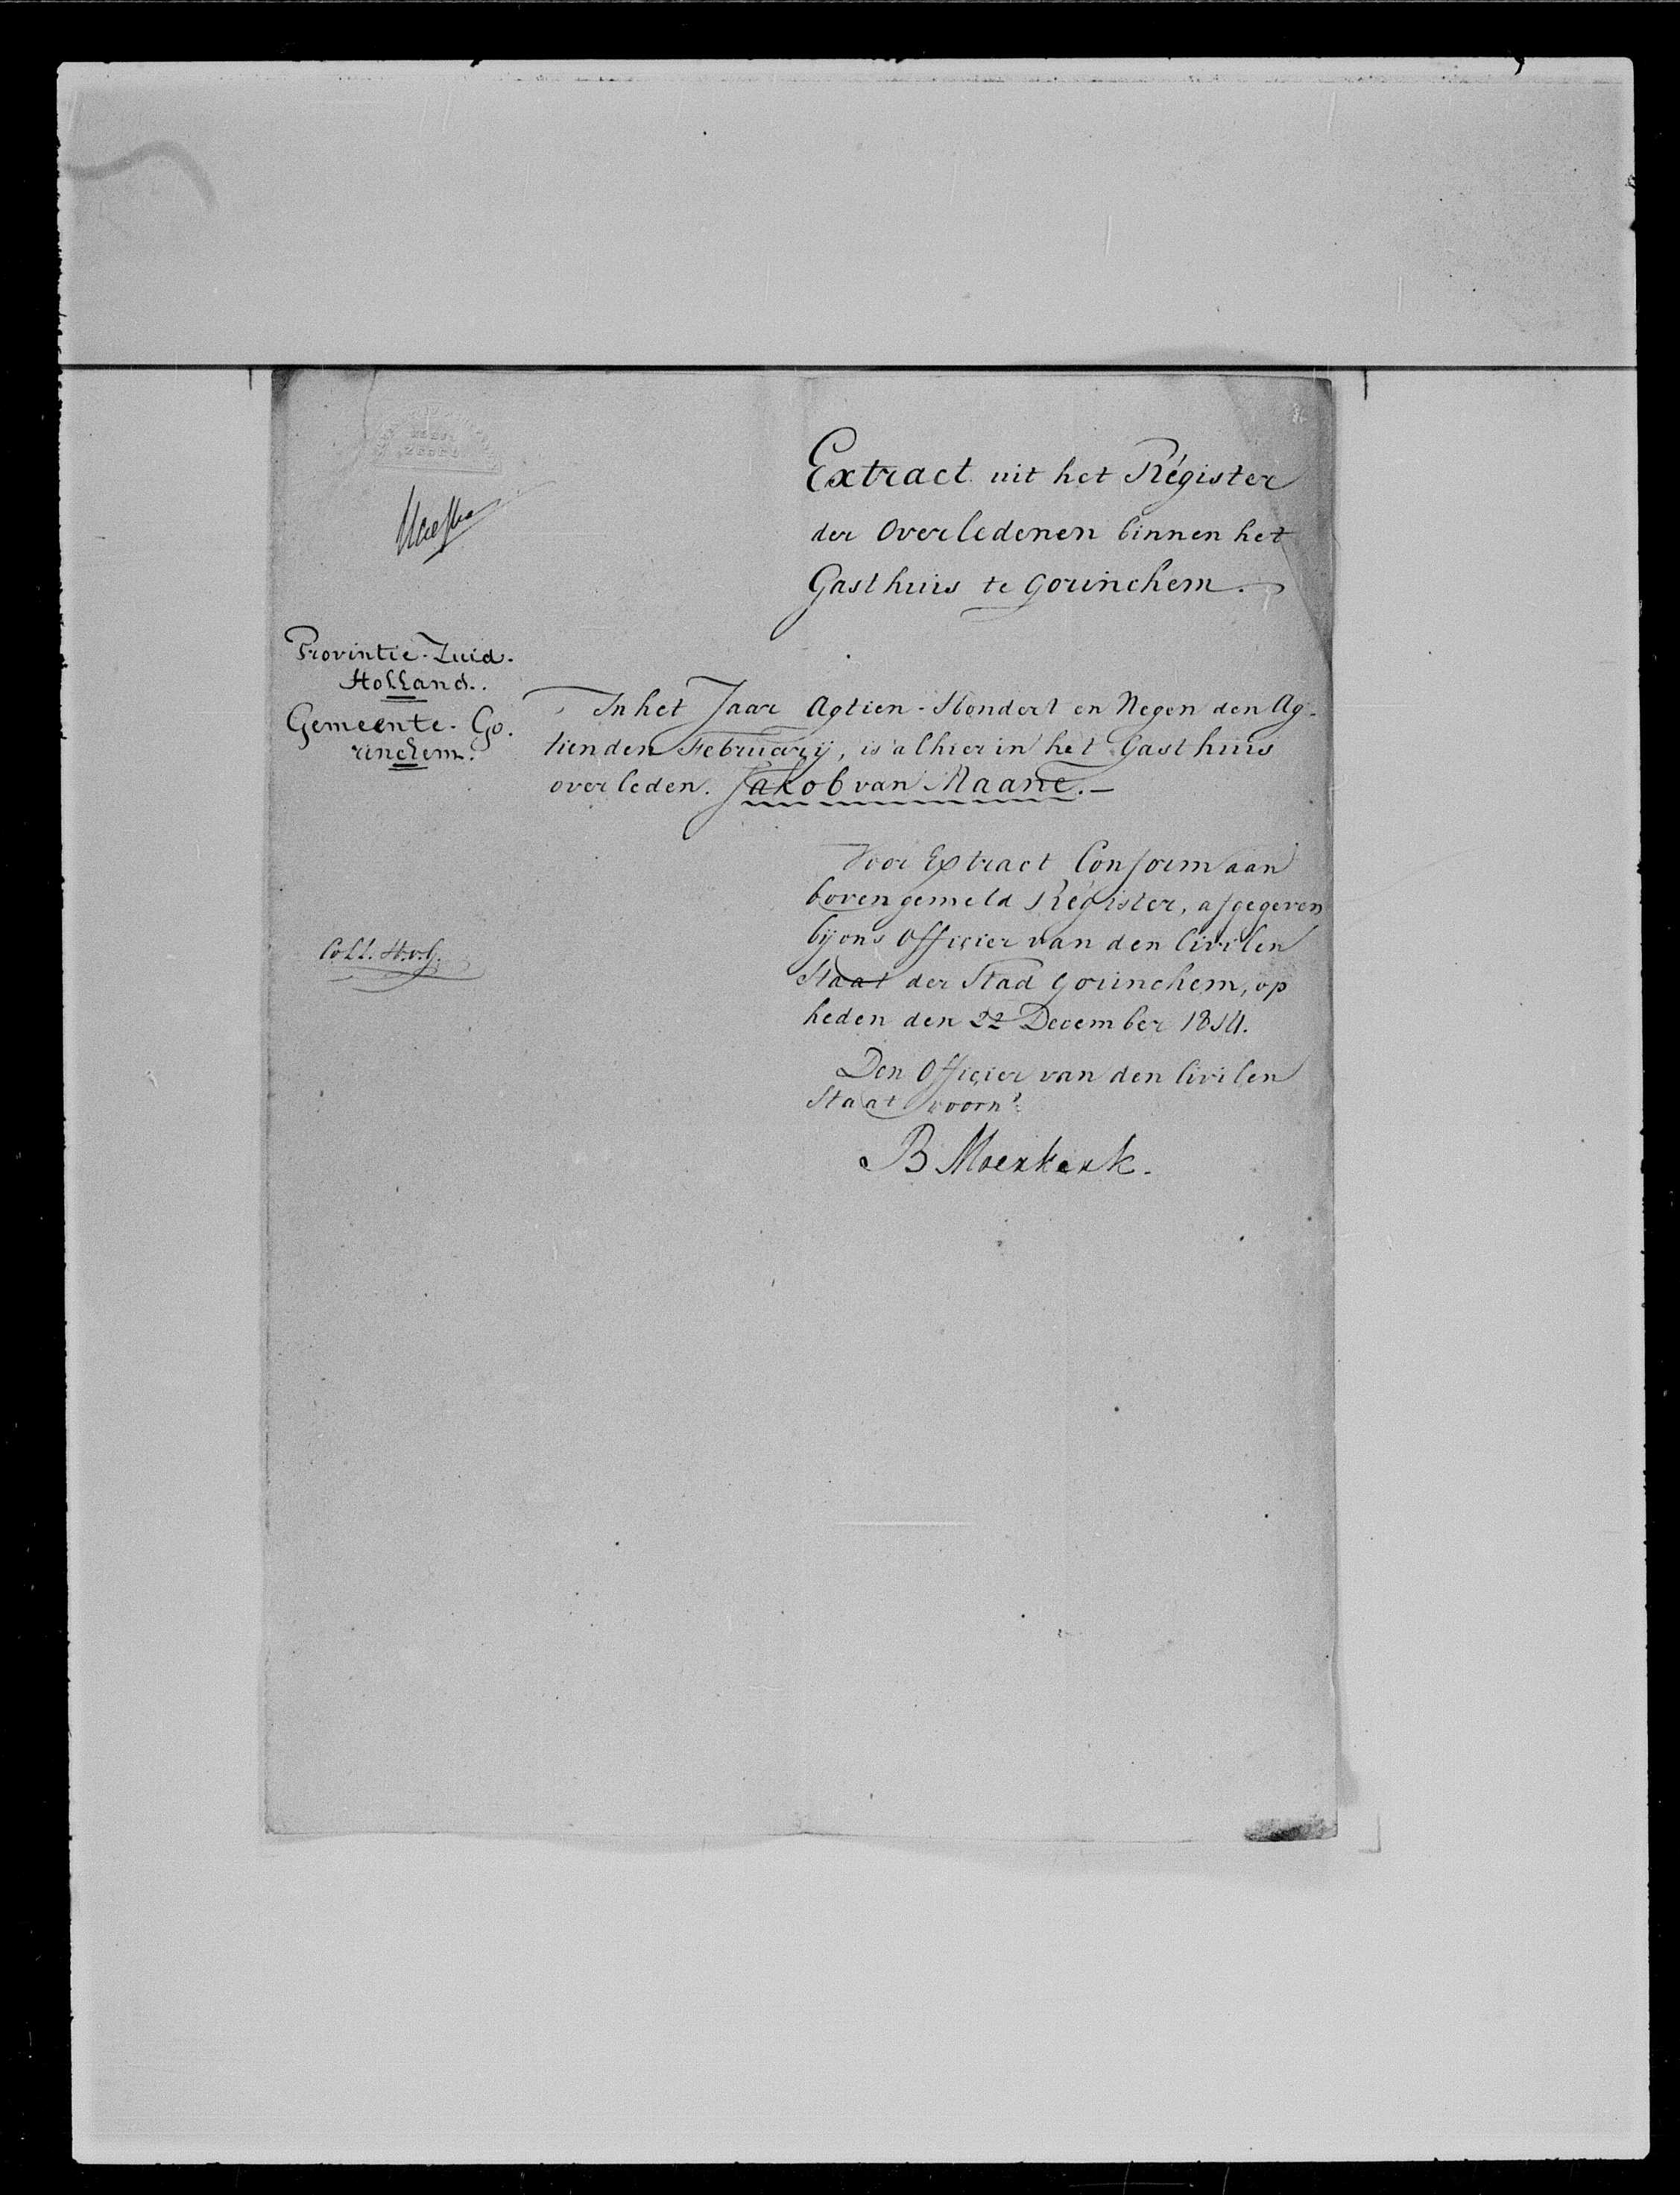 Extract uit het Régister
der Overledenen binnen het
Gasthuis te Gorinchem.
Provintie-Zuid.
Holland.
Gemeente-Go.
rinchem.
In het Jaar Agtien-Hondert en Negen den Ag-
tienden February, is alhier in het Gasthuis
overleden. Jakob van Maane.—
Voor Extract Conform aan
bovengemeld Régister, afgegeven
bij ons Officier van den Civilen
Staat der Stad Gorinchem, op
heden den 22 December 1814.
Coll. H.v.G.
Den Officier van den Civilen
Staat voorn.
B Moerkerk.